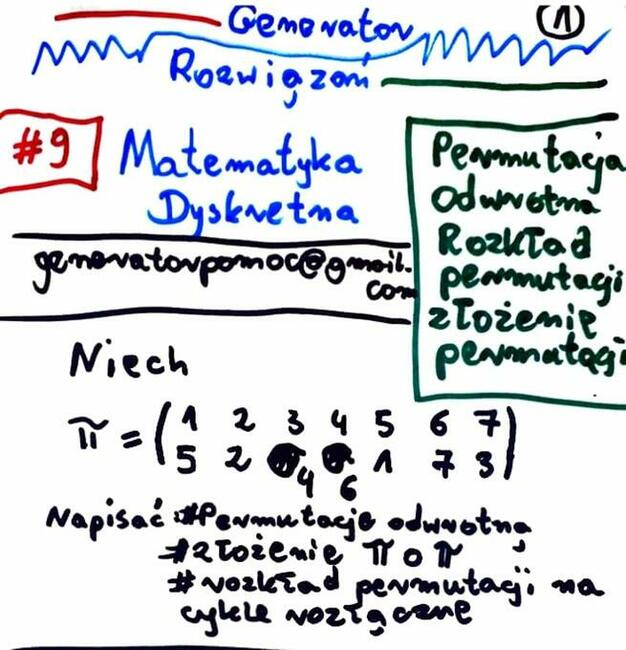 Generator
1
Rozwiązań
#9
Matematyka
Dyskretna
generatorpomoc@gmail.
com
Permutacja
Odwrotna
Rozkład
permutacji
złożenie
permutacji
Niech
π = ( 1 2 3 4 5 6 7 )
5 2 4 6 1 7 3
Napisać #Permutację odwrotną
#złożenie π o π
# rozkład permutacji na
cykle rozłączne